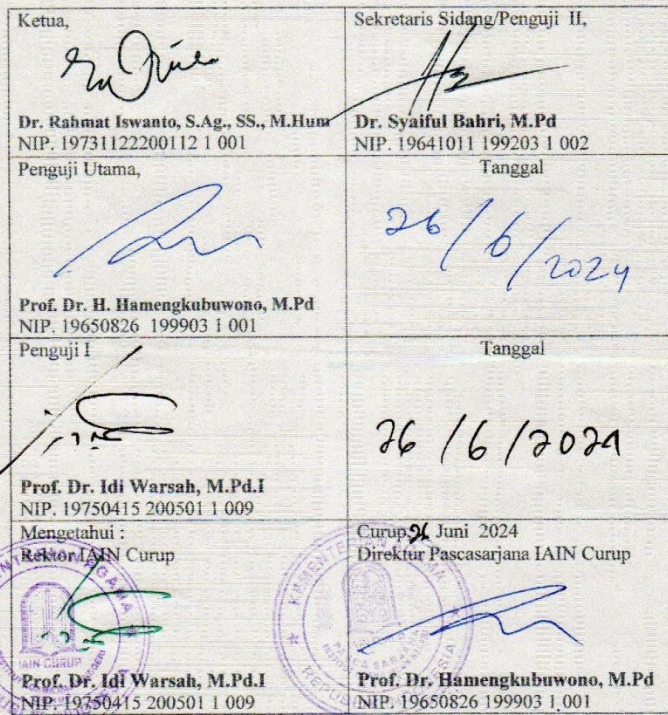 Ketua,
Dr. Rahmat Iswanto, S.Ag., SS., M.Hum
NIP. 19731122200112 1 001
Sekretaris Sidang/Penguji II,
Dr. Syaiful Bahri, M.Pd
NIP. 19641011 199203 1 002
Penguji Utama,
Prof. Dr. H. Hamengkubuwono, M.Pd
NIP. 19650826 199903 1 001
Tanggal
26/6/2024
Penguji I
Prof. Dr. Idi Warsah, M.Pd.I
NIP. 19750415 200501 1 009
Tanggal
26/6/2024
Mengetahui :
Rektor IAIN Curup
IAIN CURUP
Prof. Dr. Idi Warsah, M.Pd.I
NIP. 19750415 200501 1 009
Curup, 26 Juni 2024
Direktur Pascasarjana IAIN Curup
Prof. Dr. Hamengkubuwono, M.Pd
NIP. 19650826 199903 1 001